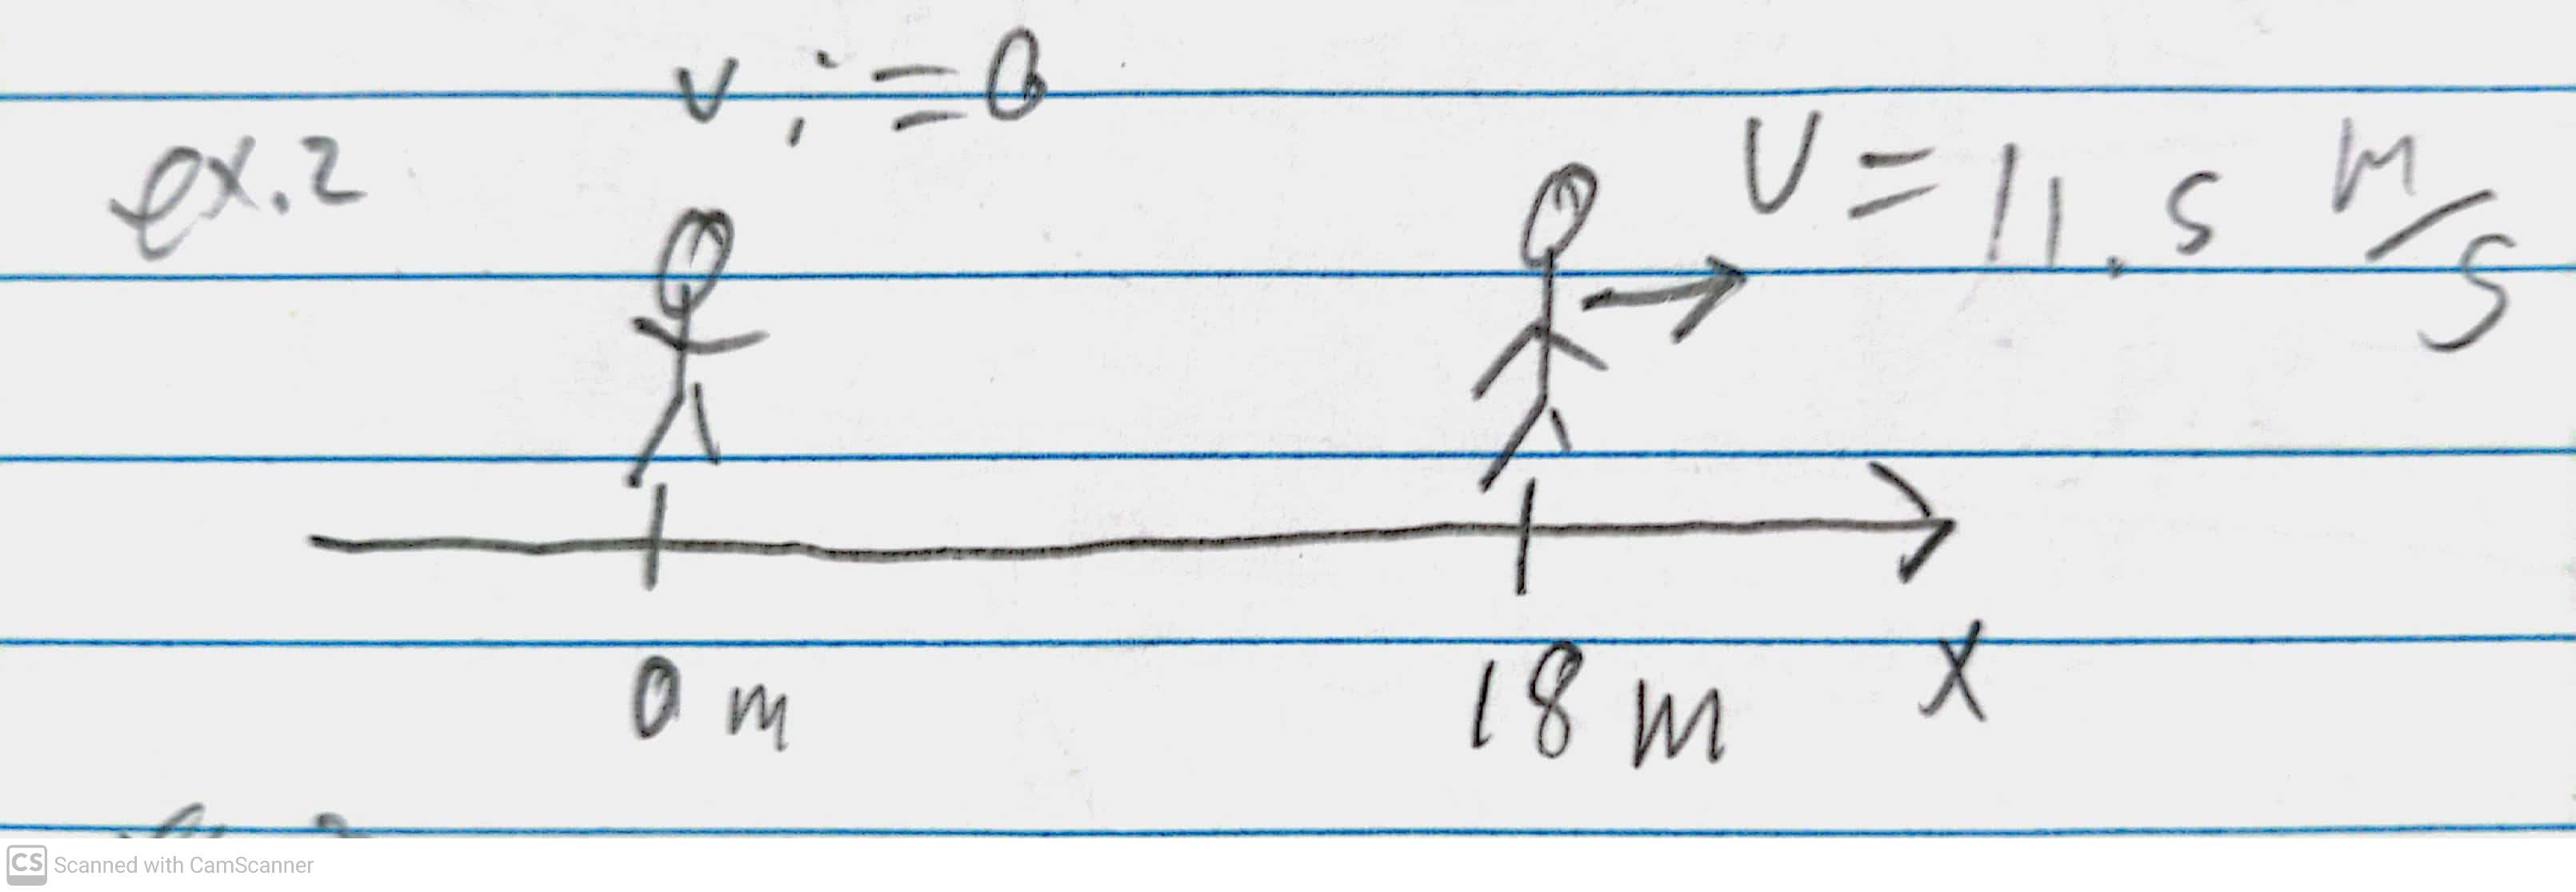 vi = 0
ex.2
V = 11.5 m/s
0 m
18 m
x
CS Scanned with CamScanner